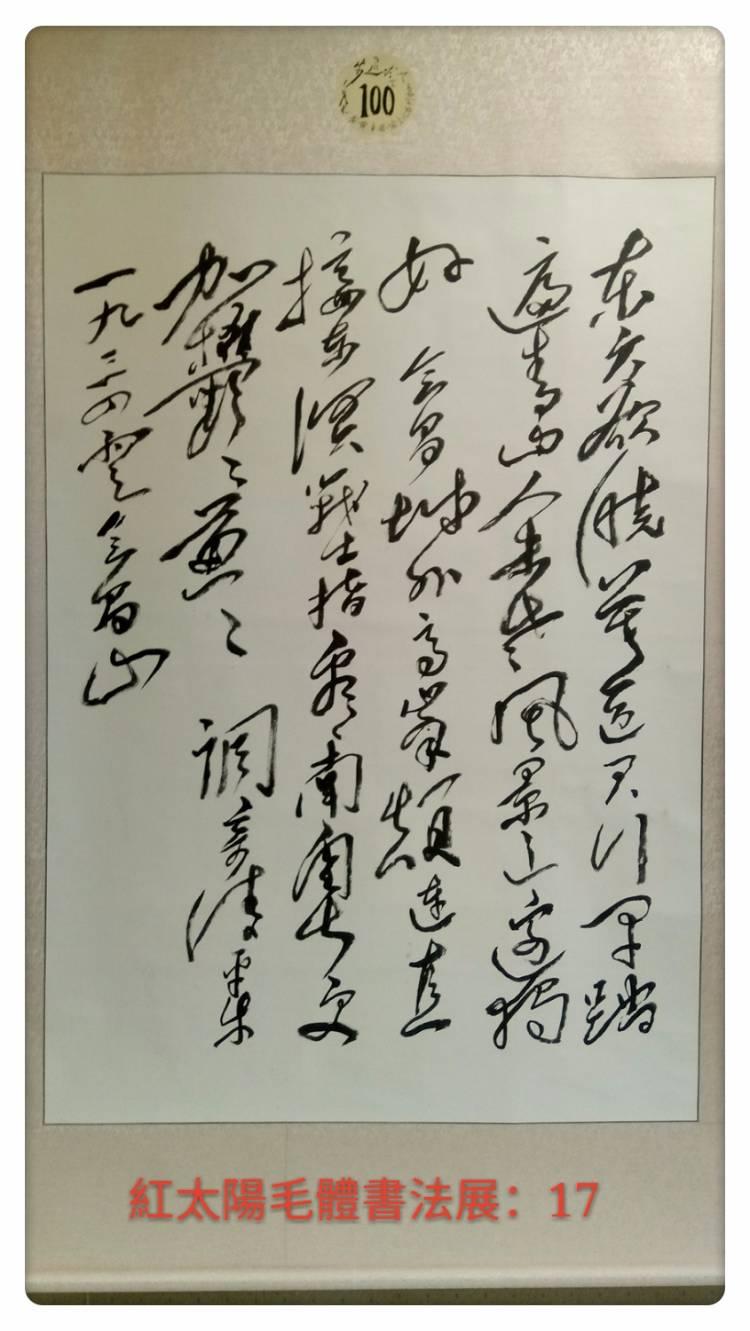 100
东方欲曉莫道君行早踏
遍青山人未老風景这边独
好 会昌城外高峰顛連直
接东溟戰士指看南粵更
加鬱〻蔥〻 調寄清平乐
一九三四登会昌山
紅太陽毛體書法展：17